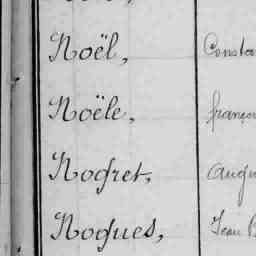 Noël, Consta
Noële, françoi
Nogret, Augu
Nogues, Jean B